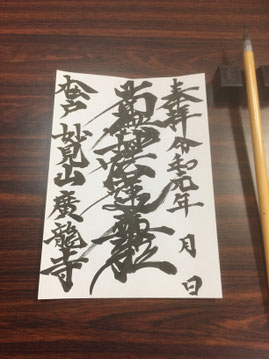 奉拝 令和元年 月 日
南無妙法蓮華経
松戸 妙見山廣龍寺